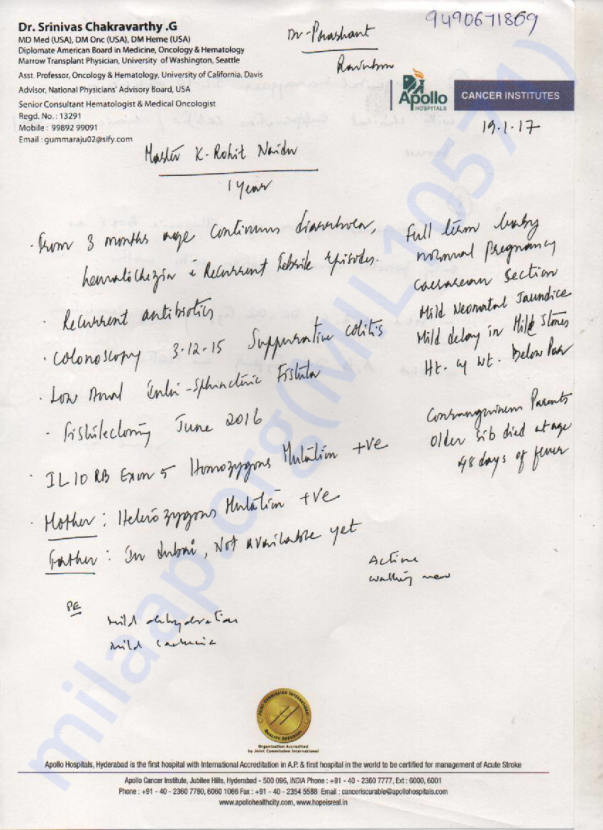 Dr. Srinivas Chakravarthy .G
MD Med (USA), DM Onc (USA), DM Heme (USA)
Diplomate American Board in Medicine, Oncology & Hematology
Marrow Transplant Physician, University of Washington, Seattle
Asst. Professor, Oncology & Hematology, University of California, Davis
Advisor, National Physicians' Advisory Board, USA
Senior Consultant Hematologist & Medical Oncologist
Regd. No.: 13291
Mobile : 99892 99091
Email : gummaraju02@sify.com
Dr. Prashant
Rainbow
9490671809
Apollo
HOSPITALS
CANCER INSTITUTES
19-1-17
Master K. Rohit Naidu
1 year
· From 3 months age continuous diarrhoea,
hematochezia c Recurrent Febrile Episodes.
· Recurrent antibiotics
· Colonoscopy 3-12-15 Suppurative colitis
· Low Anal Inter-Sphincteric Fistula
· Fistulectomy June 2016
· IL10RB Exon 5 Homozygous Mutation +ve
· Mother : Heterozygous Mutation +ve
Father : In Dubai, Not available yet
Full term baby
normal Pregnancy
Caesarean Section
Mild Neonatal Jaundice
Mild delay in Mile Stones
Ht. & Wt. Below Par
Consanguineous Parents
Older Sib died at age
48 days of fever
Active
walking now
PE
mild dehydration
mild
milaap.org(MIL10571
Organization Accredited
by Joint Commission International
Apollo Hospitals, Hyderabad is the first hospital with International Accreditation in A.P. & first hospital in the world to be certified for management of Acute Stroke
Apollo Cancer Institute, Jubilee Hills, Hyderabad - 500 096, INDIA Phone : +91 - 40 - 2360 7777, Ext : 6000, 6001
Phone : +91 - 40 - 2360 7780, 6060 1066 Fax : +91 - 40 - 2354 5588 Email : canceriscurable@apollohospitals.com
www.apollohealthcity.com, www.hopeisreal.in